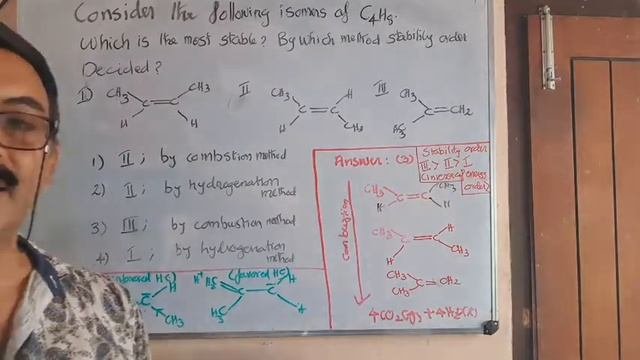 Consider the following isomers of C4H8.
Which is the most stable? By which method stability order
Decided?
I) CH3 CH3 C=C H H
II CH3 H C=C H CH3
III CH3 C=CH2 H3C
1) II ; by combstion method
2) II ; by hydrogenation method
3) III ; by combustion method
4) I ; by hydrogenation method
Answer: (3)
Stability order
III > II > I
(inverse of energy order)
Combustion
CH3 CH3 C=C H H
CH3 H C=C H CH3
CH3 C=CH2 CH3
4CO2(g) + 4H2O(l)
(favored HC)
CH3
H3C